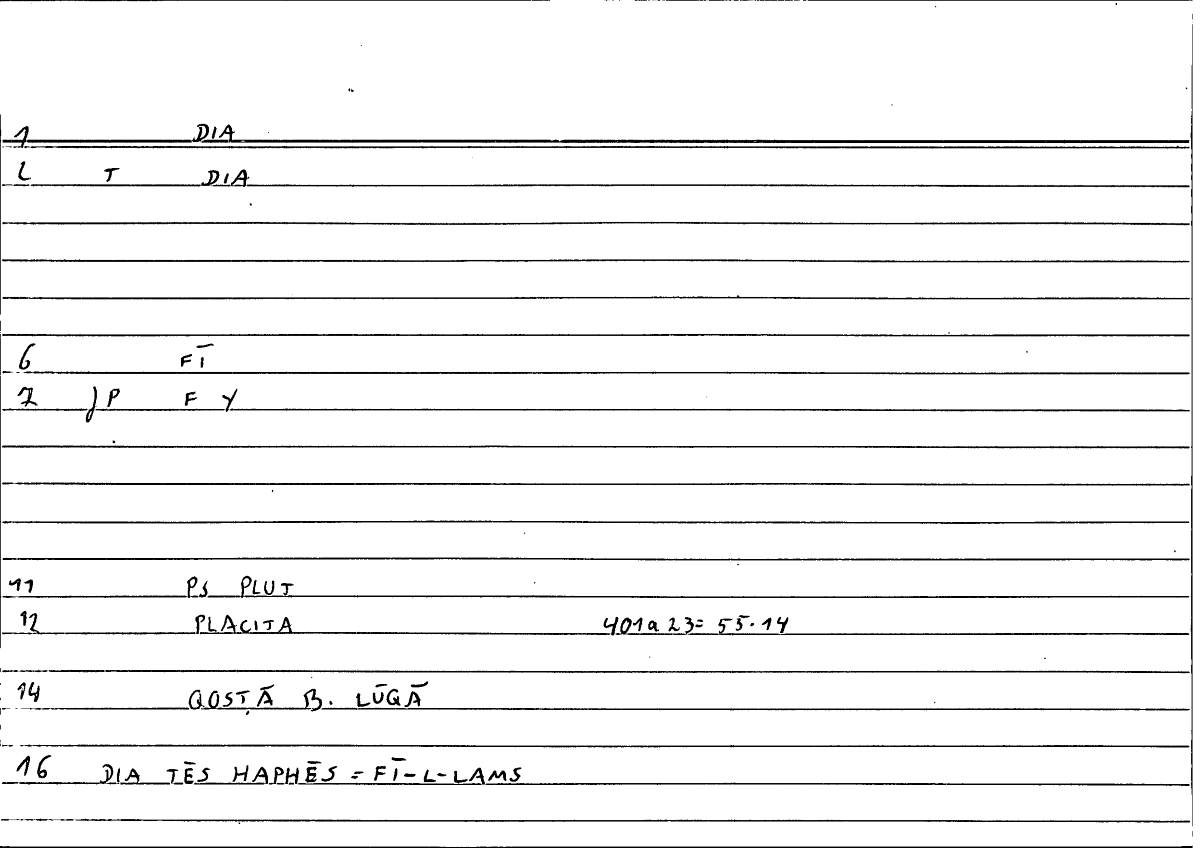 1 DIA
2 T DIA
6 FĪ
7 JP F Y
11 PS PLUT
12 PLACITA 401a23= 55.14
14 QOSṬĀ B. LŪQĀ
16 DIA TĒS HAPHĒS = FĪ-L-LAMS